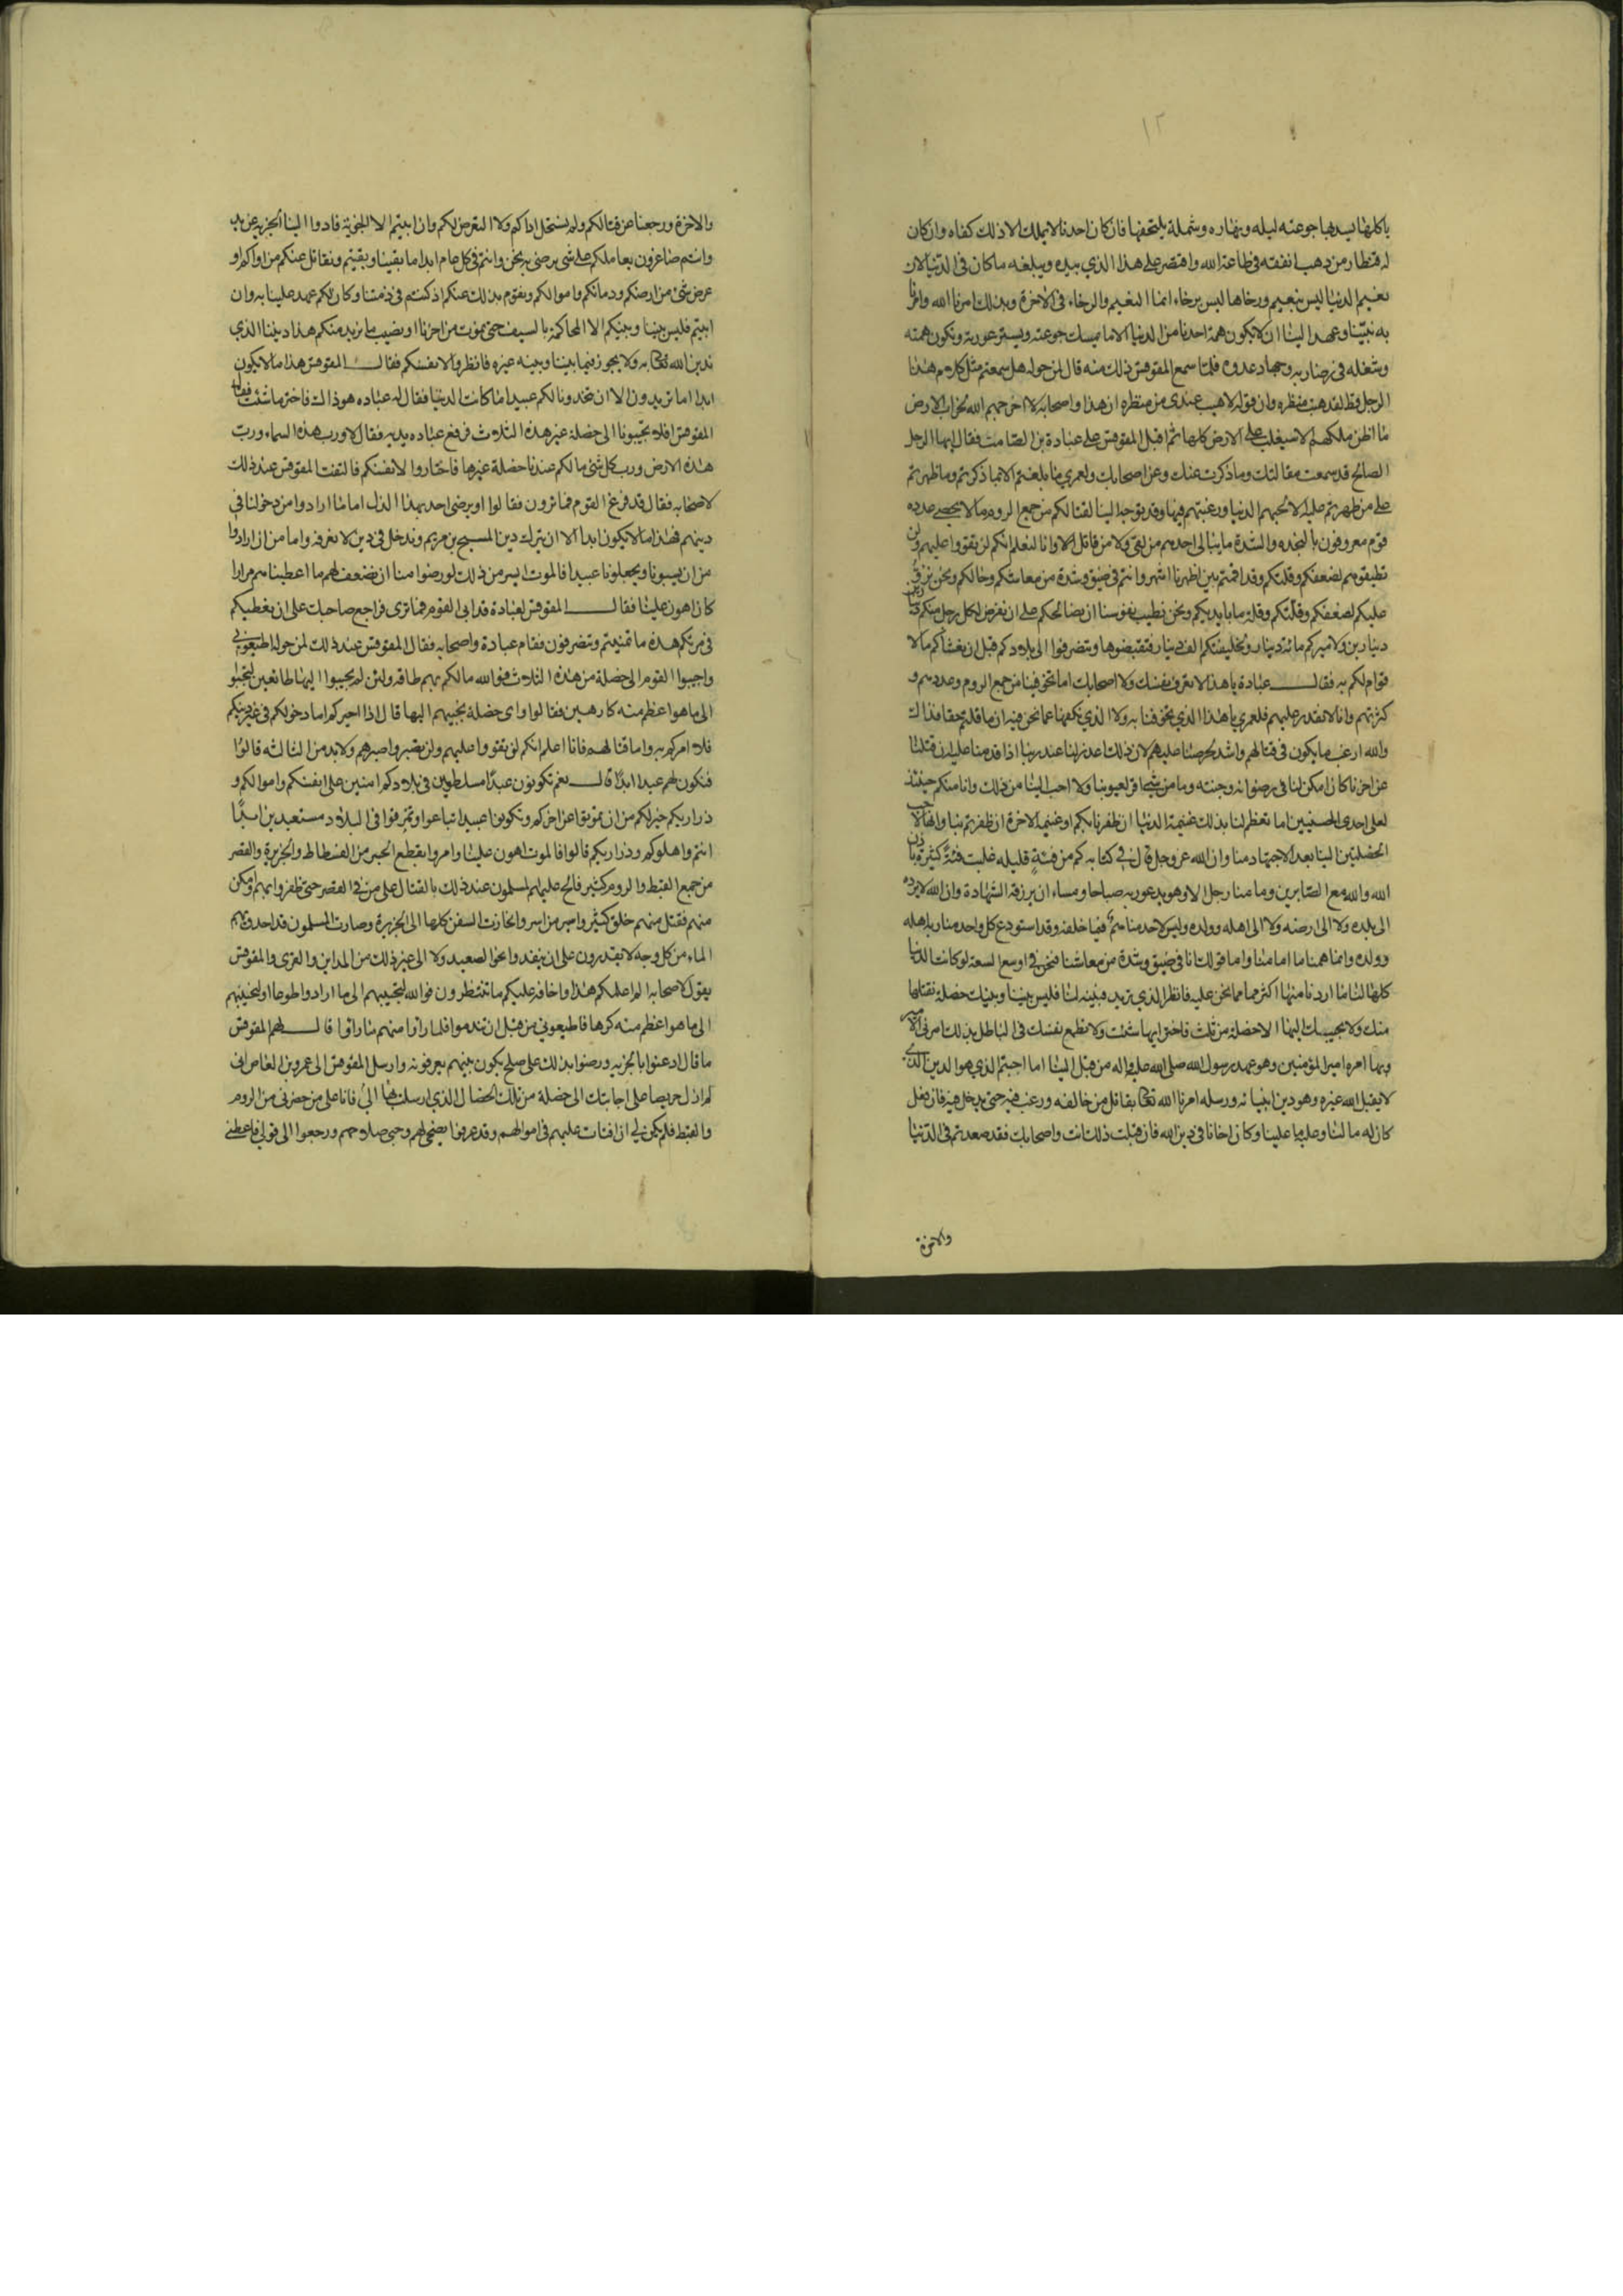 ١٢
ياكلها يسد بها جوعته ليله ونهاره وشملة يلتحفها فان كان احدنا لا يملك الا ذلك كفاه وان كان
له قنطار من ذهب انفقه في طاعة الله واقتصر على هذا الذي بيده ويبلغه ما كان في الدنيا لان
نعيم الدنيا ليس بنعيم ورخاها ليس برخاء انما النعيم والرخاء في الاخرة وبذلك امرنا الله وامرنا
به نبينا وعهد الينا ان لا يكون همة احدنا من الدنيا الا ما يمسك جوعته ويستر عورته وتكون همته
وشغله في رضا ربه وجهاد عدوه فلما سمع المقوقس ذلك منه قال لمن حوله هل سمعتم مثل كلام هذا
الرجل قط لقد هبت منظره وان قوله لاهيب عندي من منظره ان هذا واصحابه لا اخرجهم الله لخراب الارض
ما اظن ملكهم الا سيغلب على الارض كلها ثم اقبل المقوقس على عبادة بن الصامت فقال ايها الرجل
الصالح قد سمعت مقالتك وما ذكرت عنك وعن اصحابك ولعمري ما بلغتم الا بما ذكرتم وما ظهرتم
على من ظهرتم عليه الا لحبهم الدنيا ورغبتهم فيها وقد توجه الينا لقتالكم من جمع الروم ما لا يحصى عدده
قوم معروفون بالنجده والشدة ما يبالي احدهم من لقي ولا من قاتل الا وانا لنعلم انكم لن تقووا عليهم ولن
تطيقوهم لضعفكم وقلتكم وقد اقمتم بين اظهرنا اشهر وانتم في ضيق وشدة من معاشكم وحالكم ونحن نرق
عليكم لضعفكم وقلتكم وقلة ما بايديكم ونحن تطيب نفوسنا ان نصالحكم على ان نفرض لكل رجل منكم
دينارين ولاميركم مائة دينار ولخليفتكم الف دينار فتقبضوها وتنصرفوا الى بلادكم قبل ان يغشاكم ما لا
قوام لكم به فقال عبادة يا هذا لا تغرن نفسك ولا اصحابك اما تخوفينا من جمع الروم وعددهم و
كثرتهم وانا لا نقدر عليهم فلعمري ما هذا الذي تخوفنا به ولا الذي يكفينا عما نحن فيه ان ما قلتم حقا فذاك
والله ارغب ما يكون في قتالهم واشد لحرصنا عليهم لان ذلك اعذر لنا عند ربنا اذا قدمنا عليه ان قتلنا
عن اخرنا كان امكن لنا في رضوانه وجنته وما من شيئ اقر لعيوننا ولا احب الينا من ذلك وانا منكم حينئذ
لعلى احدى الحسنيين اما تعظم لنا بذلك غنيمة الدنيا ان ظفرنا بكم او غنيمة الاخرة ان ظفرتم بنا وانها لاحب
الخصلتين الينا بعد الاجتهاد منا وان الله عز وجل قال في كتابه كم من فئة قليله غلبت فئة كثيرة باذن
الله والله مع الصابرين وما منا رجل الا وهو يدعو ربه صباحا ومساء ان يرزقه الشهادة وان الله لا يرده
الى بلده ولا الى ارضه ولا الى اهله وولده وليس لاحد منا هم فيما خلفه وقد استودع كل واحد منا ربه اهله
وولده وانما همنا ما امامنا واما قولك انا في ضيق وشدة من معاشنا فنحن في اوسع السعة لو كانت الدنيا
كلها لنا ما اردنا منها اكثر مما نحن عليه فانظر الذي تريد فبينه لنا فليس بيننا وبينك خصلة نقبلها
منك ولا نجيبك اليها الا خصلة من ثلث فاختر ايها شئت ولا تطمع نفسك في الباطل بذلك امرني الامير
وبها امره امير المؤمنين وهو عهد رسول الله صلى الله عليه واله من قبل الينا اما اجبتم الذي هو الدين الذي
لا يقبل الله غيره وهو دين انبيائه ورسله امرنا الله تعالى يقاتل من خالفه ورغب فيه حتى يدخل فيه فان فعل
كان له ما لنا وعليه ما علينا وكان اخانا في دين الله فان قبلت ذلك انت واصحابك فقد سعدتم في الدنيا
والاخرة
والاخرة ورجعنا عن قتالكم ولم نستحل اذاكم ولا التعرض لكم وان ابيتم الا الجزية فادوا الينا الجزيه عن يد
وانتم صاغرون نعاملكم على شي نرضى به نحن وانتم في كل عام ابدا ما بقينا وبقيتم ونقاتل عنكم من ناواكم او
عرض شي من ارضكم ودمائكم واموالكم ونقوم بذلك عنكم اذ كنتم في ذمتنا وكان لكم عهد علينا به وان
ابيتم فليس بيننا وبينكم الا المحاكمة بالسيف حتى نموت من اخرنا او نصيب ما نريد منكم هذا ديننا الذي
ندين الله تعالى به ولا يجوز فيما بيننا وبينه غيره فانظروا لانفسكم فقال المقوقس هذا ما لا يكون
ابدا ما تريدون الا ان تتخدونا لكم عبيدا ما كانت الدنيا فقال له عباده هو ذاك فاختر ما شئت فقال
المقوقس افلا تجيبونا الى خصلة غير هذه الثلاث فرفع عباده يديه فقال لا ورب هذه السماء ورب
هذه الارض ورب كل شئ ما لكم عندنا خصلة غيرها فاختاروا لانفسكم فالتفت المقوقس عند ذلك
لاصحابه فقال قد فرغ القوم فما ترون فقالوا او يرضى احد بهذا الذل اما ما ارادوا من دخولنا في
دينهم فهذا ما لا يكون ابدا الا ان نترك دين المسيح بن مريم وندخل في دين لا نعرفه واما من ان ارادوا
من ان يسبونا ويجعلونا عبيدا فالموت ايسر من ذلك لو رضوا منا ان نضعف لهم ما اعطيناهم مرارا
كان اهون علينا فقال المقوقس لعبادة قد ابى القوم فما ترى فراجع صاحبك على ان نعطيكم
في مرتكم هذه ما تمنيتم وتنصرفون فقام عبادة واصحابه فقال المقوقس عند ذلك لمن حوله اطيعوني
واجيبوا القوم الى خصلة من هذه الثلاث فوالله ما لكم بهم طاقه ولئن لم تجيبوا اليها طائعين لتجيبوا
الى ما هو اعظم منه كارهين فقالوا واى خصلة نجيبهم اليها قال اذا اخبركم اما دخولكم في غير دينكم
فلا امركم به واما قتالهم فانا اعلم انكم لن تقووا عليهم ولن تصبروا صبرهم ولا بد من الثالثه قالوا
فنكون لهم عبيدا ابدا قال نعم تكونون عبيدا مسلطين في بلادكم امنين على انفسكم واموالكم و
ذراريكم خير لكم من ان تموتوا عن اخركم وتكونوا عبيدا تباعوا وتمزقوا في البلاد مستعبدين ابدا
انتم واهلوكم وذراريكم قالوا فالموت اهون علينا وامروا بقطع الجسر من الفسطاط والجزيرة والقصر
من جمع القبط والروم كثير فالح عليهم المسلمون عند ذلك بالقتال على من في القصر حتى ظفروا بهم وامكن
منهم فقتل منهم خلق كثير واسر من اسر وانحازت السفن كلها الى الجزيرة وصارت المسلمون قد احدق بهم
الماء من كل وجه لا يقدرون على ان ينفدوا نحو الصعيد ولا الى غير ذلك من المداين والقرى والمقوقس
يقول لاصحابه الم اعلمكم هذا واخافه عليكم ما تنتظرون فوالله لتجيبنهم الى ما ارادوا طوعا او لتجيبنهم
الى ما هو اعظم منه كرها فاطيعوني من قبل ان تندموا فلما راوا منهم ما راوا قال لهم المقوقس
ما قال اذعنوا بالجزيه ورضوا بذلك على صلح يكون بينهم يعرفونه وارسل المقوقس الى عمرو بن العاص اني
لم ازل حريصا على اجابتك الى خصلة من تلك الخصال الذي ارسلت بها الي فابا على من حضرني من الروم
والقبط فلم يكن لي ان افتات عليهم في اموالهم وقد عرفوا نصحي لهم وحبي صلاحهم ورجعوا الى قولي فاعطني